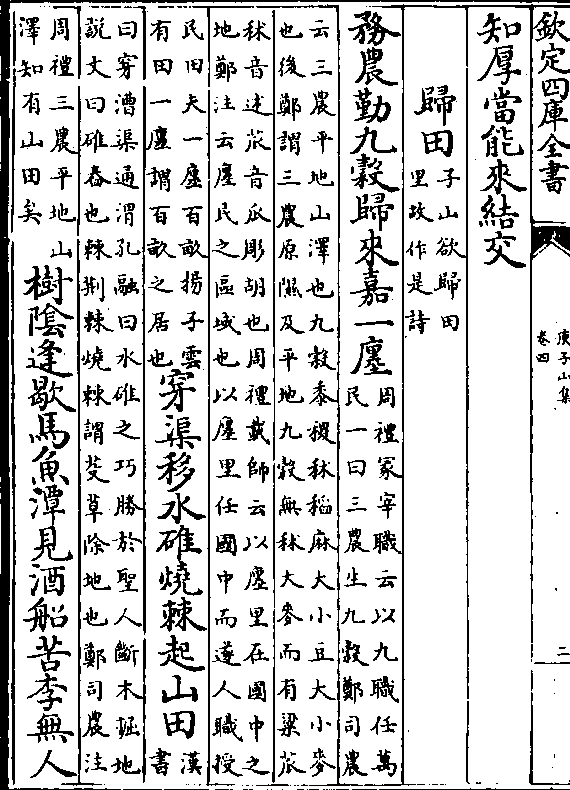 欽定四庫全書
庾子山集
卷四
二
知厚當能來結交
歸田
子山欲歸田
里故作是詩
務農勤九穀歸來嘉一廛
周禮冢宰職云以九職任萬
民一曰三農生九穀鄭司農
云三農平地山澤也九穀黍稷秫稻麻大小豆大小麥
也後鄭謂三農原隰及平地九穀無秫大麥而有粱苽
秫音述苽音瓜彫胡也周禮載師云以廛里在國中之
地鄭注云廛民之區域也以廛里任國中而遂人職授
民田夫一廛百畝揚子雲
有田一廛謂百畝之居也
穿渠移水碓燒棘起山田
漢
書
曰穿漕渠通渭孔融曰水碓之巧勝於聖人斷木掘地
說文曰碓舂也棘荆棘燒棘謂芟草除地也鄭司農注
周禮三農平地山
澤知有山田矣
樹陰逢歇馬魚潭見酒船苦李無人